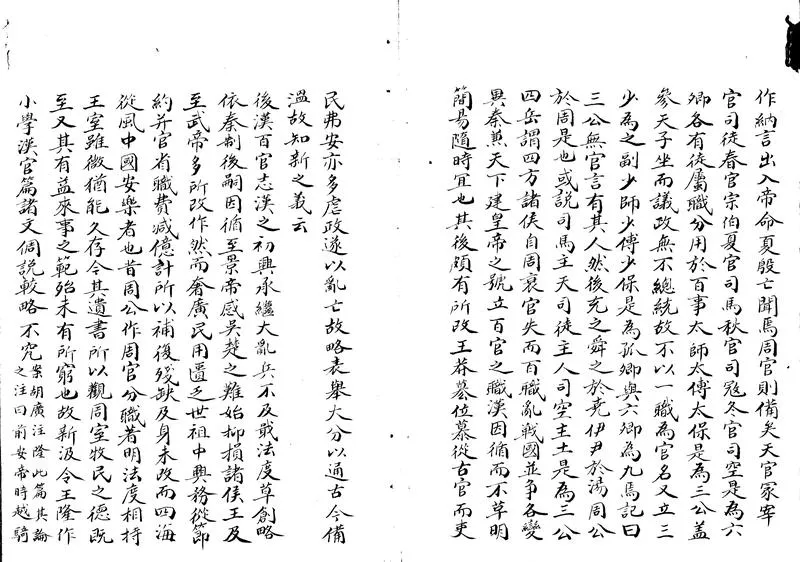 作納言出入帝命夏殷亡聞焉周官則備矣天官冢宰
官司徒春官宗伯夏官司馬秋官司寇冬官司空是為六
卿各有徒屬職分用於百事太師太傅太保是為三公蓋
參天子坐而議政無不總統故不以一職為官名又立三
少為之副少師少傅少保是為孤卿與六卿為九焉記曰
三公無官言有其人然後充之舜之於堯伊尹於湯周公
於周是也或說司馬主天司徒主人司空主土是為三公
四岳謂四方諸侯自周衰官失而百職亂戰國並爭各變
異秦兼天下建皇帝之號立百官之職漢因循而不革明
簡易隨時宜也其後頗有所改王莽篡位慕從古官而吏
民弗安亦多虐政遂以亂亡故略表舉大分以通古今備
溫故知新之義云
後漢百官志漢之初興承繼大亂兵不及戢法度草創略
依秦制後嗣因循至景帝感吳楚之難始抑損諸侯王及
至武帝多所改作然而奢廣民用匱乏世祖中興務從節
約并官省職費減億計所以補復殘缺及身未改而四海
從風中國安樂者也昔周公作周官分職著明法度相持
王室雖微猶能久存今其遺書所以觀周室牧民之德既
至又其有益來事之範殆未有所窮也故新汲令王隆作
小學漢官篇諸文倜說較略不究案胡廣注隆此篇其論之注曰前安帝時越騎